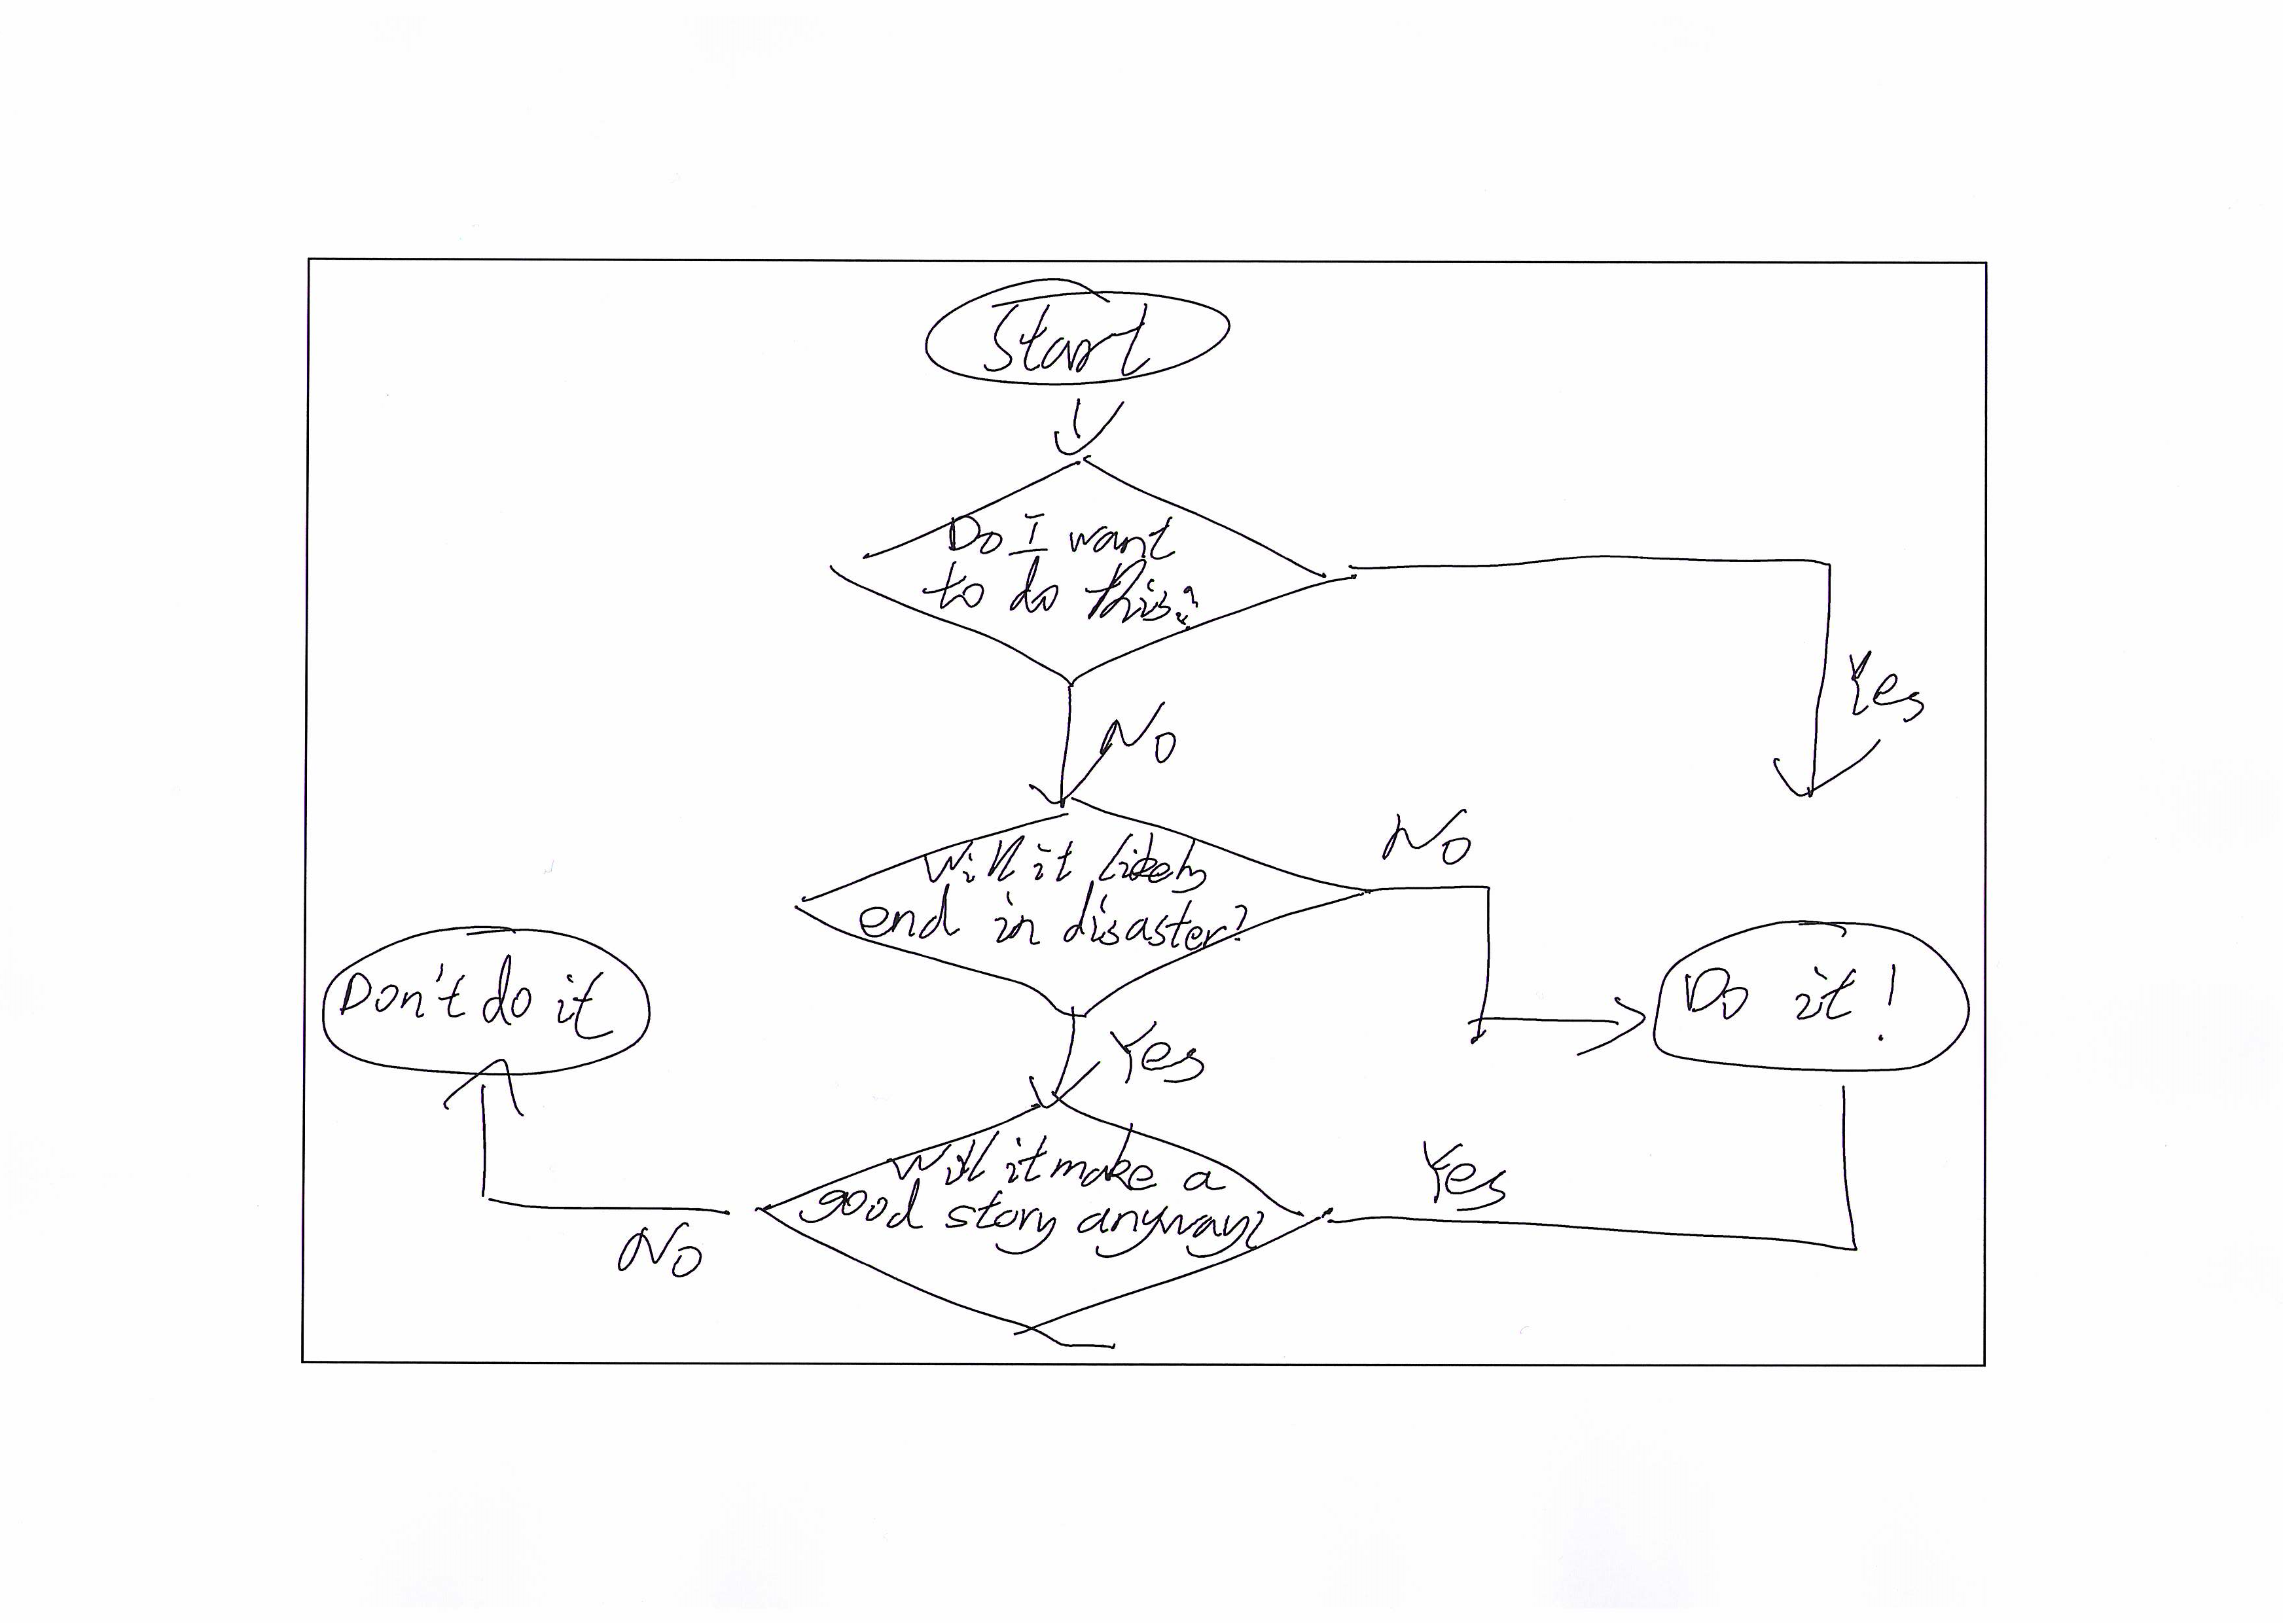 Start
Do I want
to do this?
Yes
No
Will it likely
end in disaster?
No
Don't do it
Do it!
Yes
Will it make a
good story anyway?
Yes
No